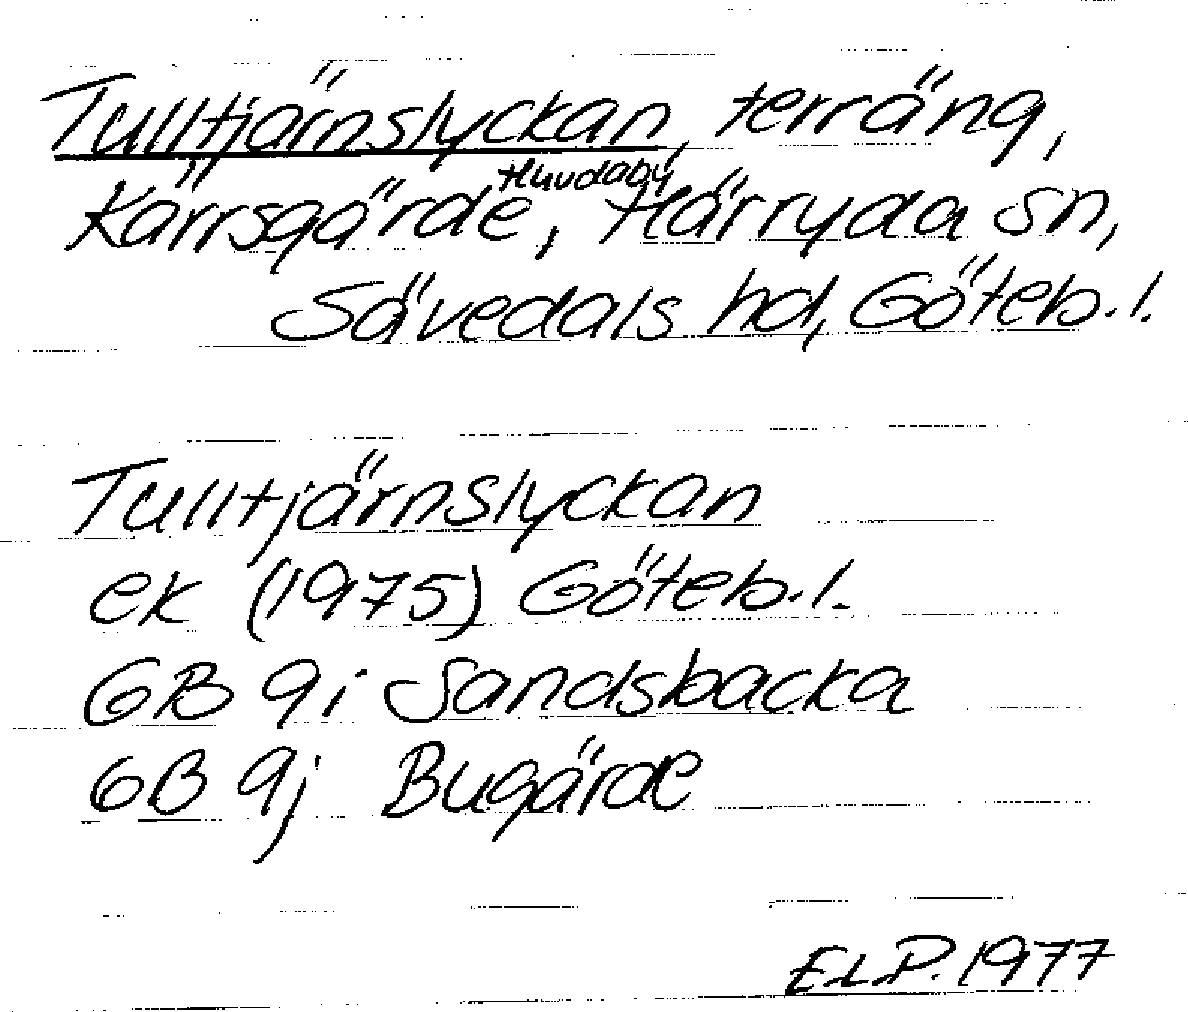 Tulltjärnslyckan, terräng,
Huvdaby
Kärrsgärde, Härryda sn,
Sävedals hd, Göteb.l.
Tulltjärnslyckan
ek (1975) Göteb.l.
6B 9i Sandsbacka
6B 9j Bugärde
E.L.P. 1977